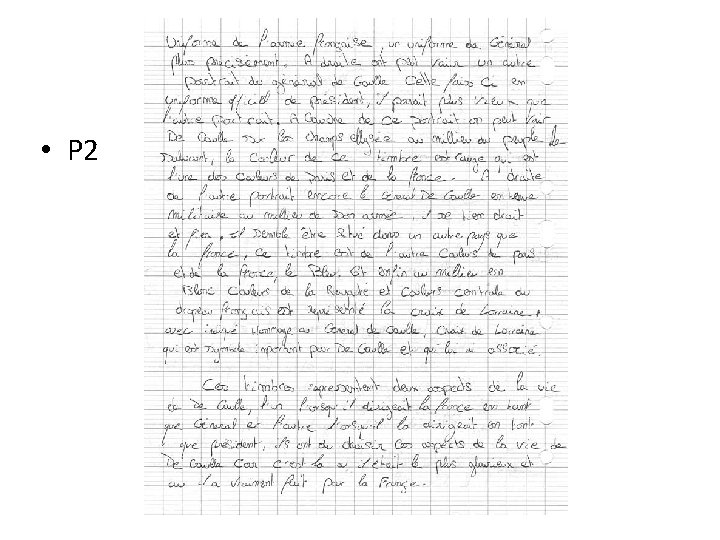 • P2
Uniforme de l'armée française, un uniforme de Général
plus précisément. A droite ont peut vair un autre
portrait du général de Gaulle Cette fois ci en
uniforme officiell de président, il parait plus vieux que
l'autre portrait. A Gauche de ce portrait on peut vair
De Gaulle sur les champs ellysée au millieu du peuple le
saluant, la Couleur de ce timbre est rouge qui est
l'une des couleurs de Paris et de la france. A droite
de l'autre portrait encore le Général De Gaulle en tenue
militaire au millieu de son armée, il se tien droit
et fier, il semble être situé dans un autre pays que
la france, ce timbre est de l'autre Couleurs de paris
et de la france, le Bleu. Et enfin au millieu en
Blanc Couleurs de la Royauté et Couleurs centrale du
drapeau français est représenté la croix de Lorraine,
avec Hommage au Général de Gaulle, Croix de Lorraine
qui est symbole important pour De Gaulle et qui lui ai associé.
Ces timbres représentent deux aspects de la vie
de De Gaulle, l'un lorsqu'il dirigeait la france en tant
que Général et l'autre lorsqu'il la dirigeait en tant
que président, ils ont du choisir ces aspects de la vie de
De Gaulle Car c'est là ou s'était le plus glorieux et
ou il a vraiment fait par la France.